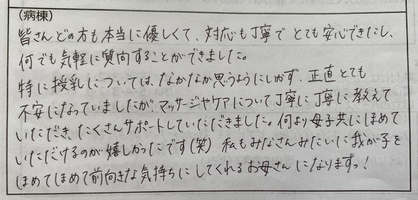 (病棟)
皆さんどの方も本当に優しくて、対応も丁寧でとても安心できたし、
何でも気軽に質問することができました。
特に授乳については、なかなか思うようにいかず、正直とても
不安になっていましたが、マッサージやケアについて丁寧に丁寧に教えて
いただき、たくさんサポートしていただきました。何より母子共にほめて
いただけるのが嬉しかったです(笑) 私もみなさんみたいに我が子を
ほめてほめて前向きな気持ちにしてくれるお母さんになりますっ!